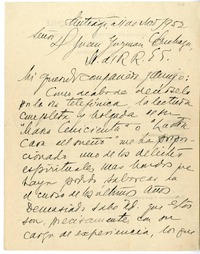 Santiago, Marzo 1952
Señor
D. Juan Guzmán Cruchaga,
M. de RR. EE.
Mi querido compañero y amigo:
Como acabo de decírselo
por la vía telefónica, la lectura
completa y holgada de su
"María Cenicienta" o "La otra
cara del sueño" me ha propor-
cionado uno de los deleites
espirituales más hondos que
haya podido saborear en
el curso de los últimos años.
Demasiado sabe Ud. que éstos
son, precisamente con su
carga de experiencia, los que